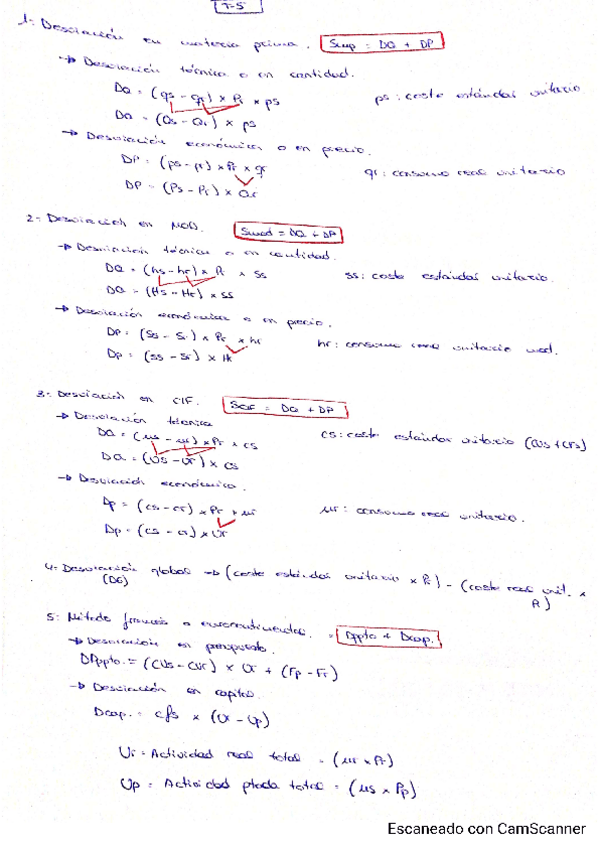 T-5
1- Desviación en materia prima. Smp = DQ + DP
→ Desviación técnica o en cantidad.
DQ = (qs - qr) × Pr × ps
ps: coste estándar unitario
DQ = (Qs - Qr) × ps
→ Desviación económica o en precio.
DP = (ps - pr) × Pr × qr
qr: consumo real unitario
DP = (Ps - Pr) × Qr
2- Desviación en MOD. Smod = DQ + DP
→ Desviación técnica o en cantidad.
DQ = (hs - hr) × Pr × ss
ss: coste estándar unitario.
DQ = (Hs - Hr) × ss
→ Desviación económica o en precio.
DP = (Ss - Sr) × Pr × hr
hr: consumo real unitario mod.
DP = (ss - sr) × Hr
3- Desviación en CIF. SCIF = DQ + DP
→ Desviación técnica
DQ = (us - ur) × Pr × cs
cs: coste estándar unitario (CVs + CFs)
DQ = (Us - Ur) × cs
→ Desviación económica.
Dp = (cs - cr) × Pr × ur
ur: consumo real unitario.
Dp = (cs - cr) × Ur
4- Desviación global → (coste estándar unitario × Pr) - (coste real unit. ×
(DG)
Pr)
5- Método francés o eurocontinental. Dppto + Dcap.
→ Desviación en presupuesto.
DPppto. = (CVs - CVr) × Ur + (Fp - Fr)
→ Desviación en capital.
Dcap. = cfs × (Ur - Up)
Ur = Actividad real total = (ur × Pr)
Up = Actividad ptada total = (us × Pp)
Escaneado con CamScanner